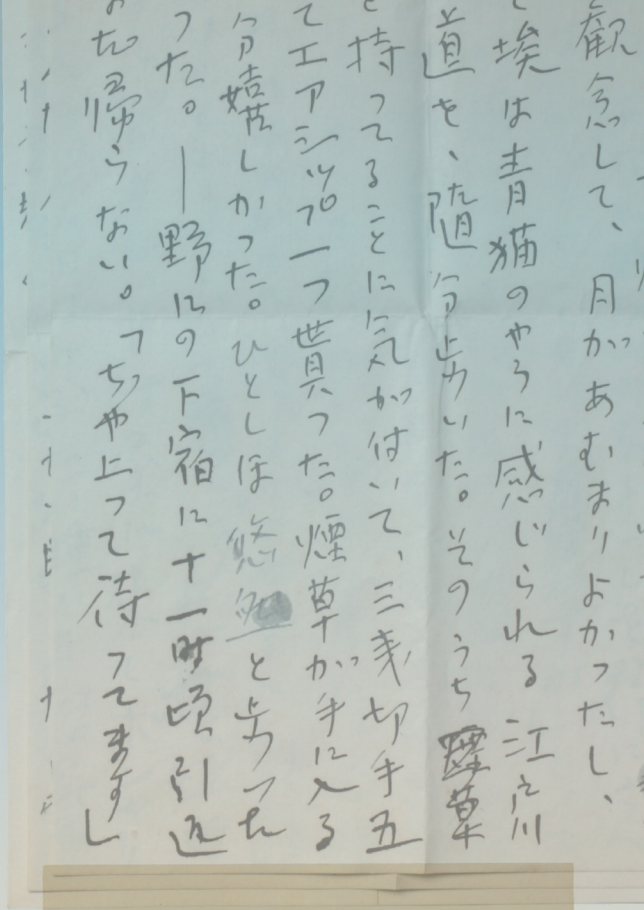 観念して、月があむまりよかつたし、
埃は青猫のやうに感じられる江戸川
道を、随分歩いた。そのうち煙草
持つてることに気が付いて、三銭切手五
てエアシップ一つ貰つた。煙草が手に入る
分嬉しかつた。ひとしほ悠然と歩つた
つた。—野にの下宿に十一時頃引返
だ帰らない。「ぢや上つて待つてます」